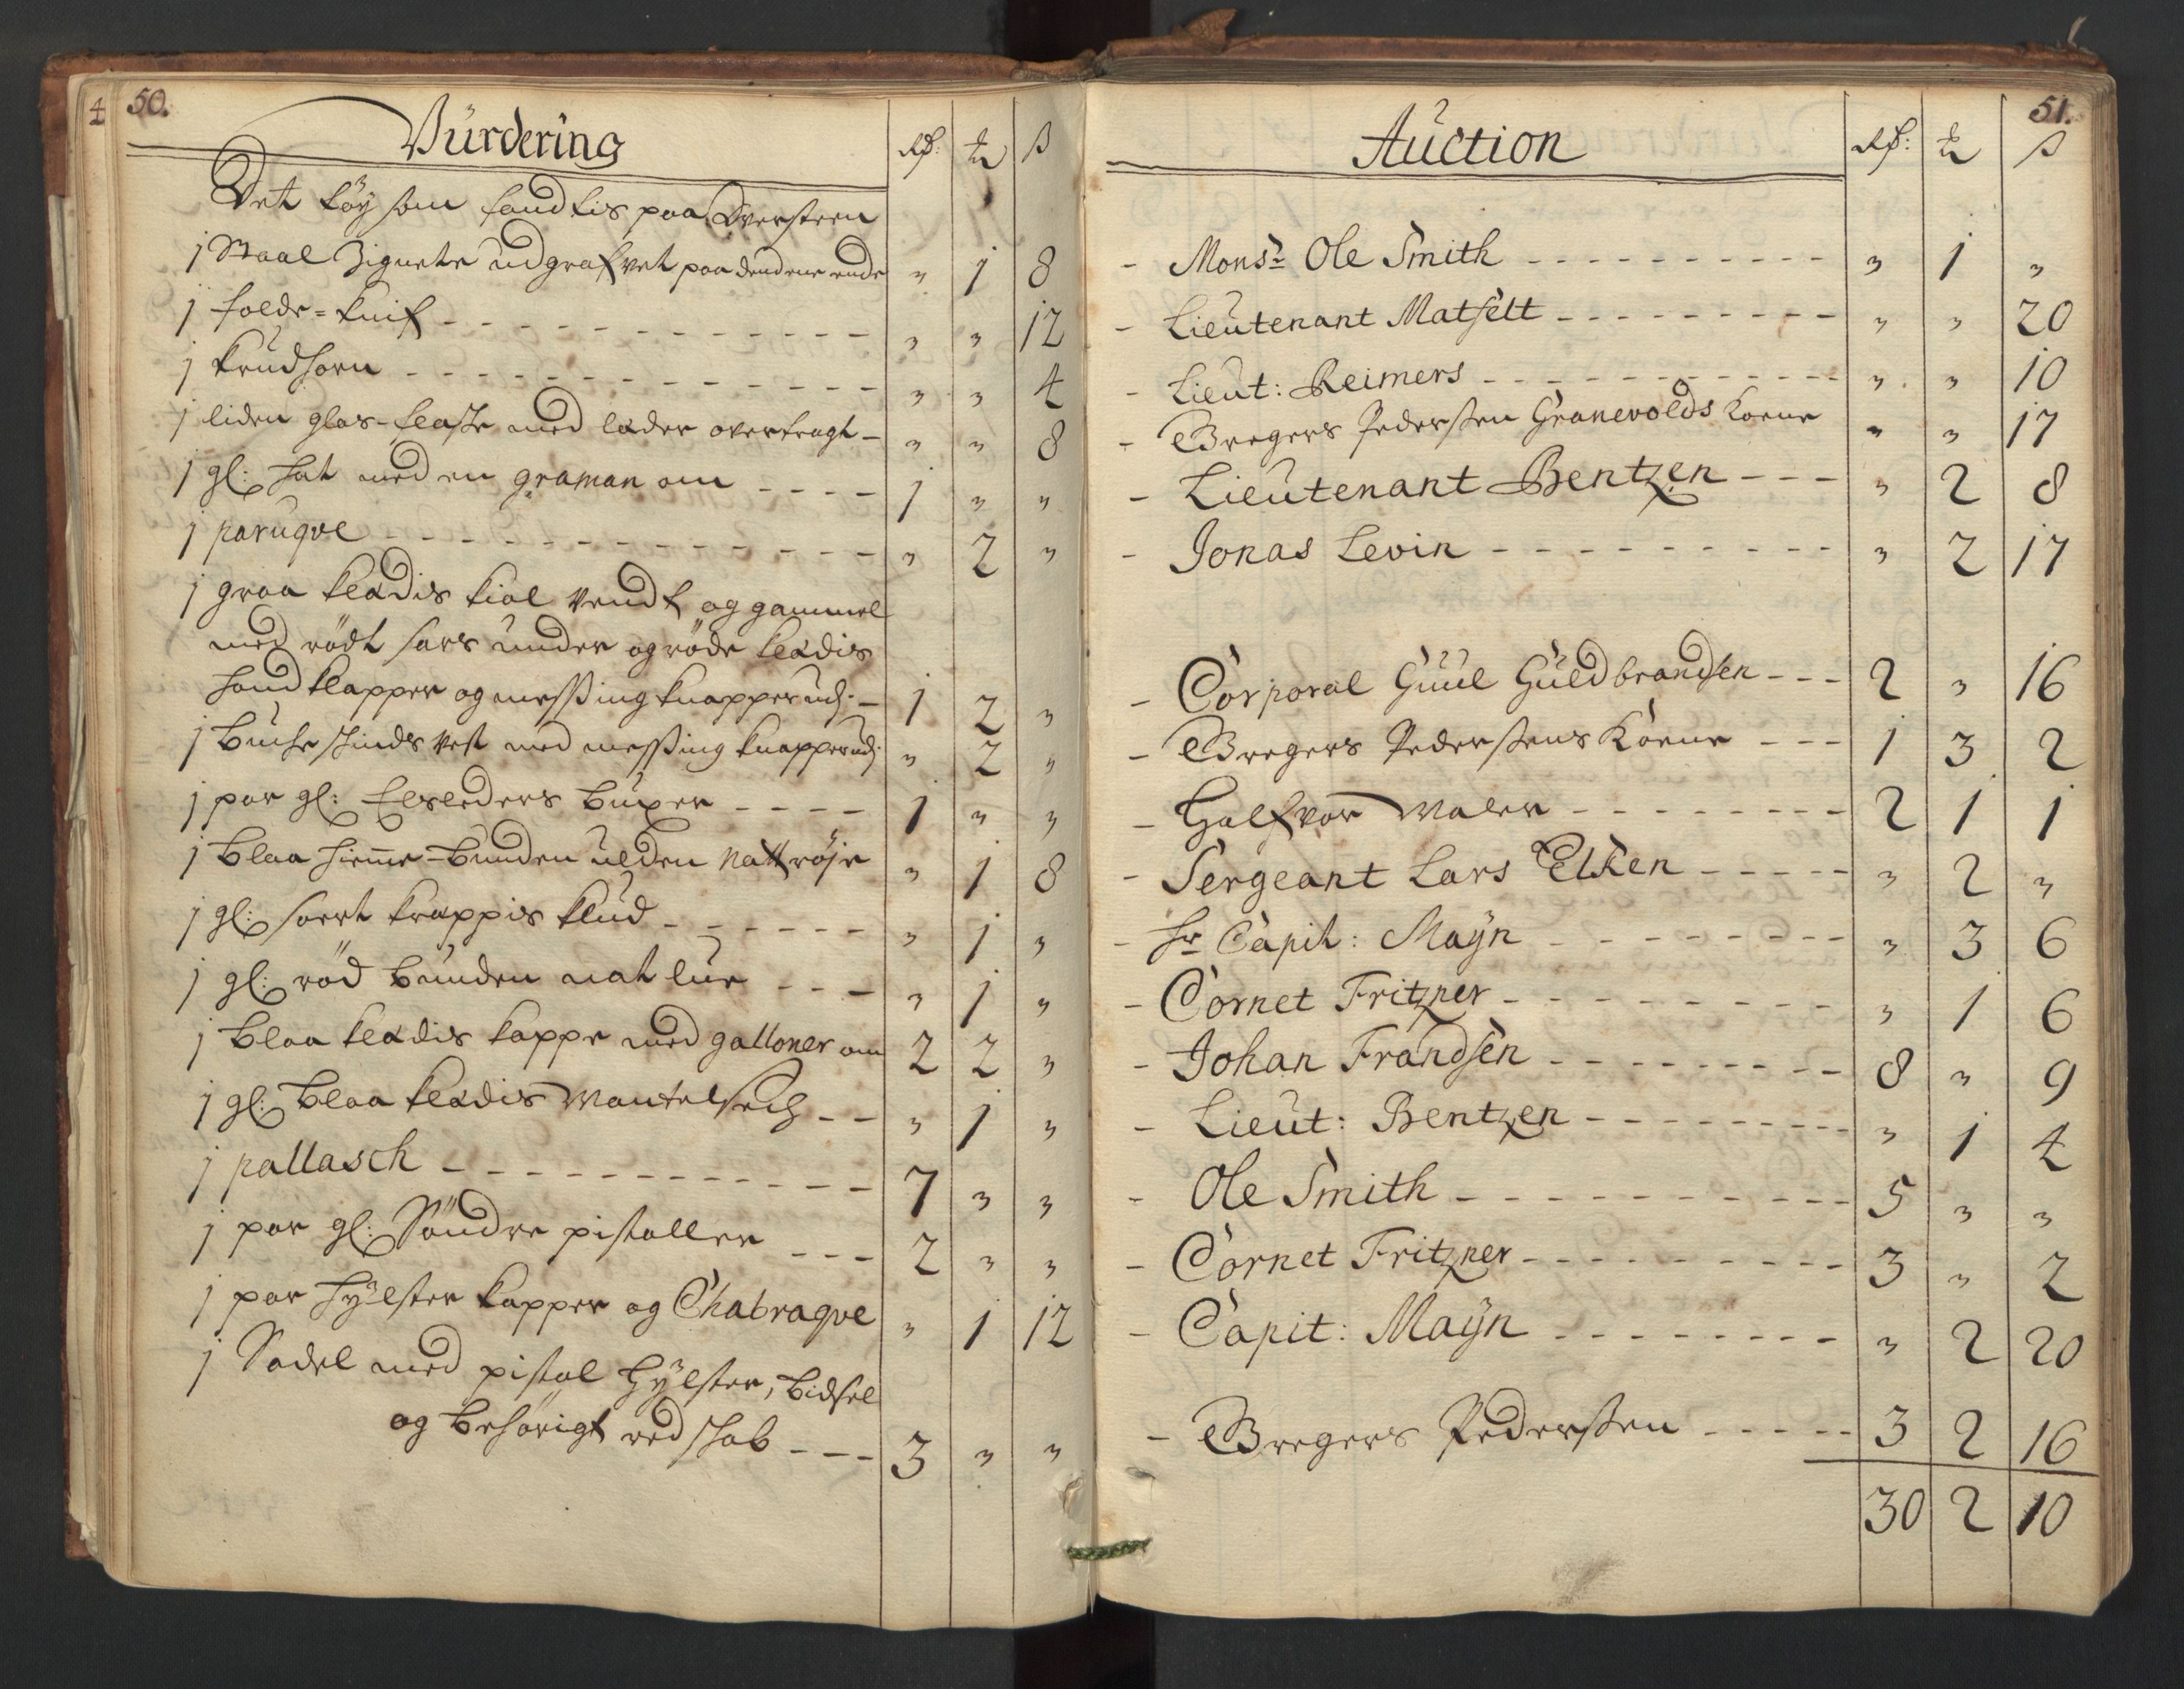 4 50.
Vürdering Rd: ₰ ß
Det töy som fandtis paa Oversteen
1 Staal Zignete udgrafvet paa dend ene ende " 1 8
1 folde=knif - - - " " 12
1 krudhorn - - - " " 4
1 liden glas-flaske med læder overtragt - " " 8
1 gl: hat med en graman om - - - - 1 " "
1 paruqve - - - " 2 "
1 graa klædis kiol vendt og gammel
med rödt sars under og röde klædis
hand klapper og messing knapper udj - 1 2 "
1 Bucke skinds vest med messing knapper udj " 2 "
1 par gl: Elsleders buxer - - - - 1 " "
1 blaa hieme-bunden ulden natt röje " 1 8
1 gl: sort krappis klud - - - " 1 "
1 gl: röd bunden nat lue - - - " 1 "
1 blaa klædis kappe med galloner om 2 2 "
1 gl: blaa klædis Mantelsech - - " 1 "
1 pallasch - - - 7 " "
1 par gl: Söndre pistoller - - - 2 " "
1 par hÿlster kapper og Chabraqve " 1 12
1 Sadel med pistol hÿlster, bidsel
og behörigt redskab - - - 3 " "
51.
Auction Rd: ₰ ß
- Monsr Ole Smith - - - " 1 "
- Lieutenant Matfelt - - - " " 20
- Lieut: Reimers - - - " " 10
- Bregers Pedersen Granevolds Kone " " 17
- Lieutenant Bentzen - - - " 2 8
- Jonas Levin - - - " 2 17
- Corporal Guul Guldbrandsen - - - 2 " 16
- Bregers Pedersens Kone - - - 1 3 2
- Halfvor Maler - - - 2 1 1
- Sergeant Lars Elken - - - " 2 "
- Hr Capit: Maÿn - - - " 3 6
- Cornet Fritzner - - - " 1 6
- Johan Frandsen - - - 8 " 9
- Lieut: Bentzen - - - " 1 4
- Ole Smith - - - 5 " "
- Cornet Fritzner - - - 3 " 2
- Capit: Maÿn - - - " 2 20
- Bregers Pedersen - - - 3 2 16
30 2 10